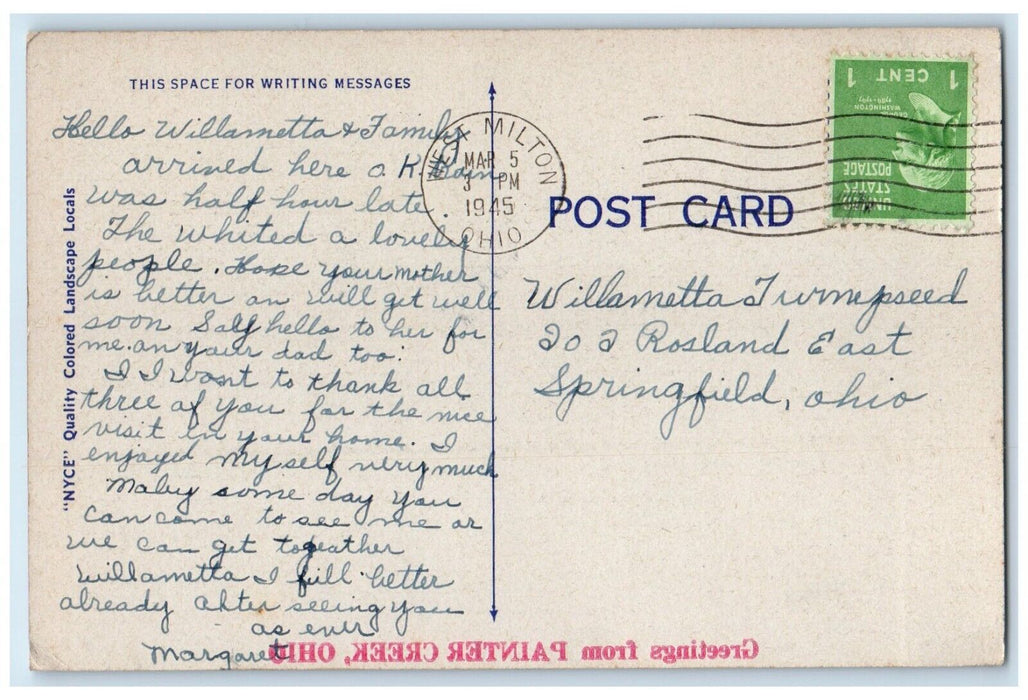 THIS SPACE FOR WRITING MESSAGES
Hello Willametta & Family
arrived here O.K. Rain
was half hour late.
The whited a lovely
people. Hope your mother
is better an will get well
soon Say hello to her for
me. an your dad too.
I I want to thank all
three of you for the nice
visit in your home. I
enjoyed myself very much
Maby some day you
can come to see me or
we can get togeather
Willametta I fill better
already after seeing you
as ever
Margaret
"NYCE" Quality Colored Landscape Locals
WEST MILTON
MAR 5
3 PM
1945
OHIO
1 CENT 1
WASHINGTON
1789-1797
UNITED
STATES
POSTAGE
POST CARD
Willametta Turnepseed
202 Rosland East
Springfield, Ohio
Greetings from PAINTER CREEK, OHIO